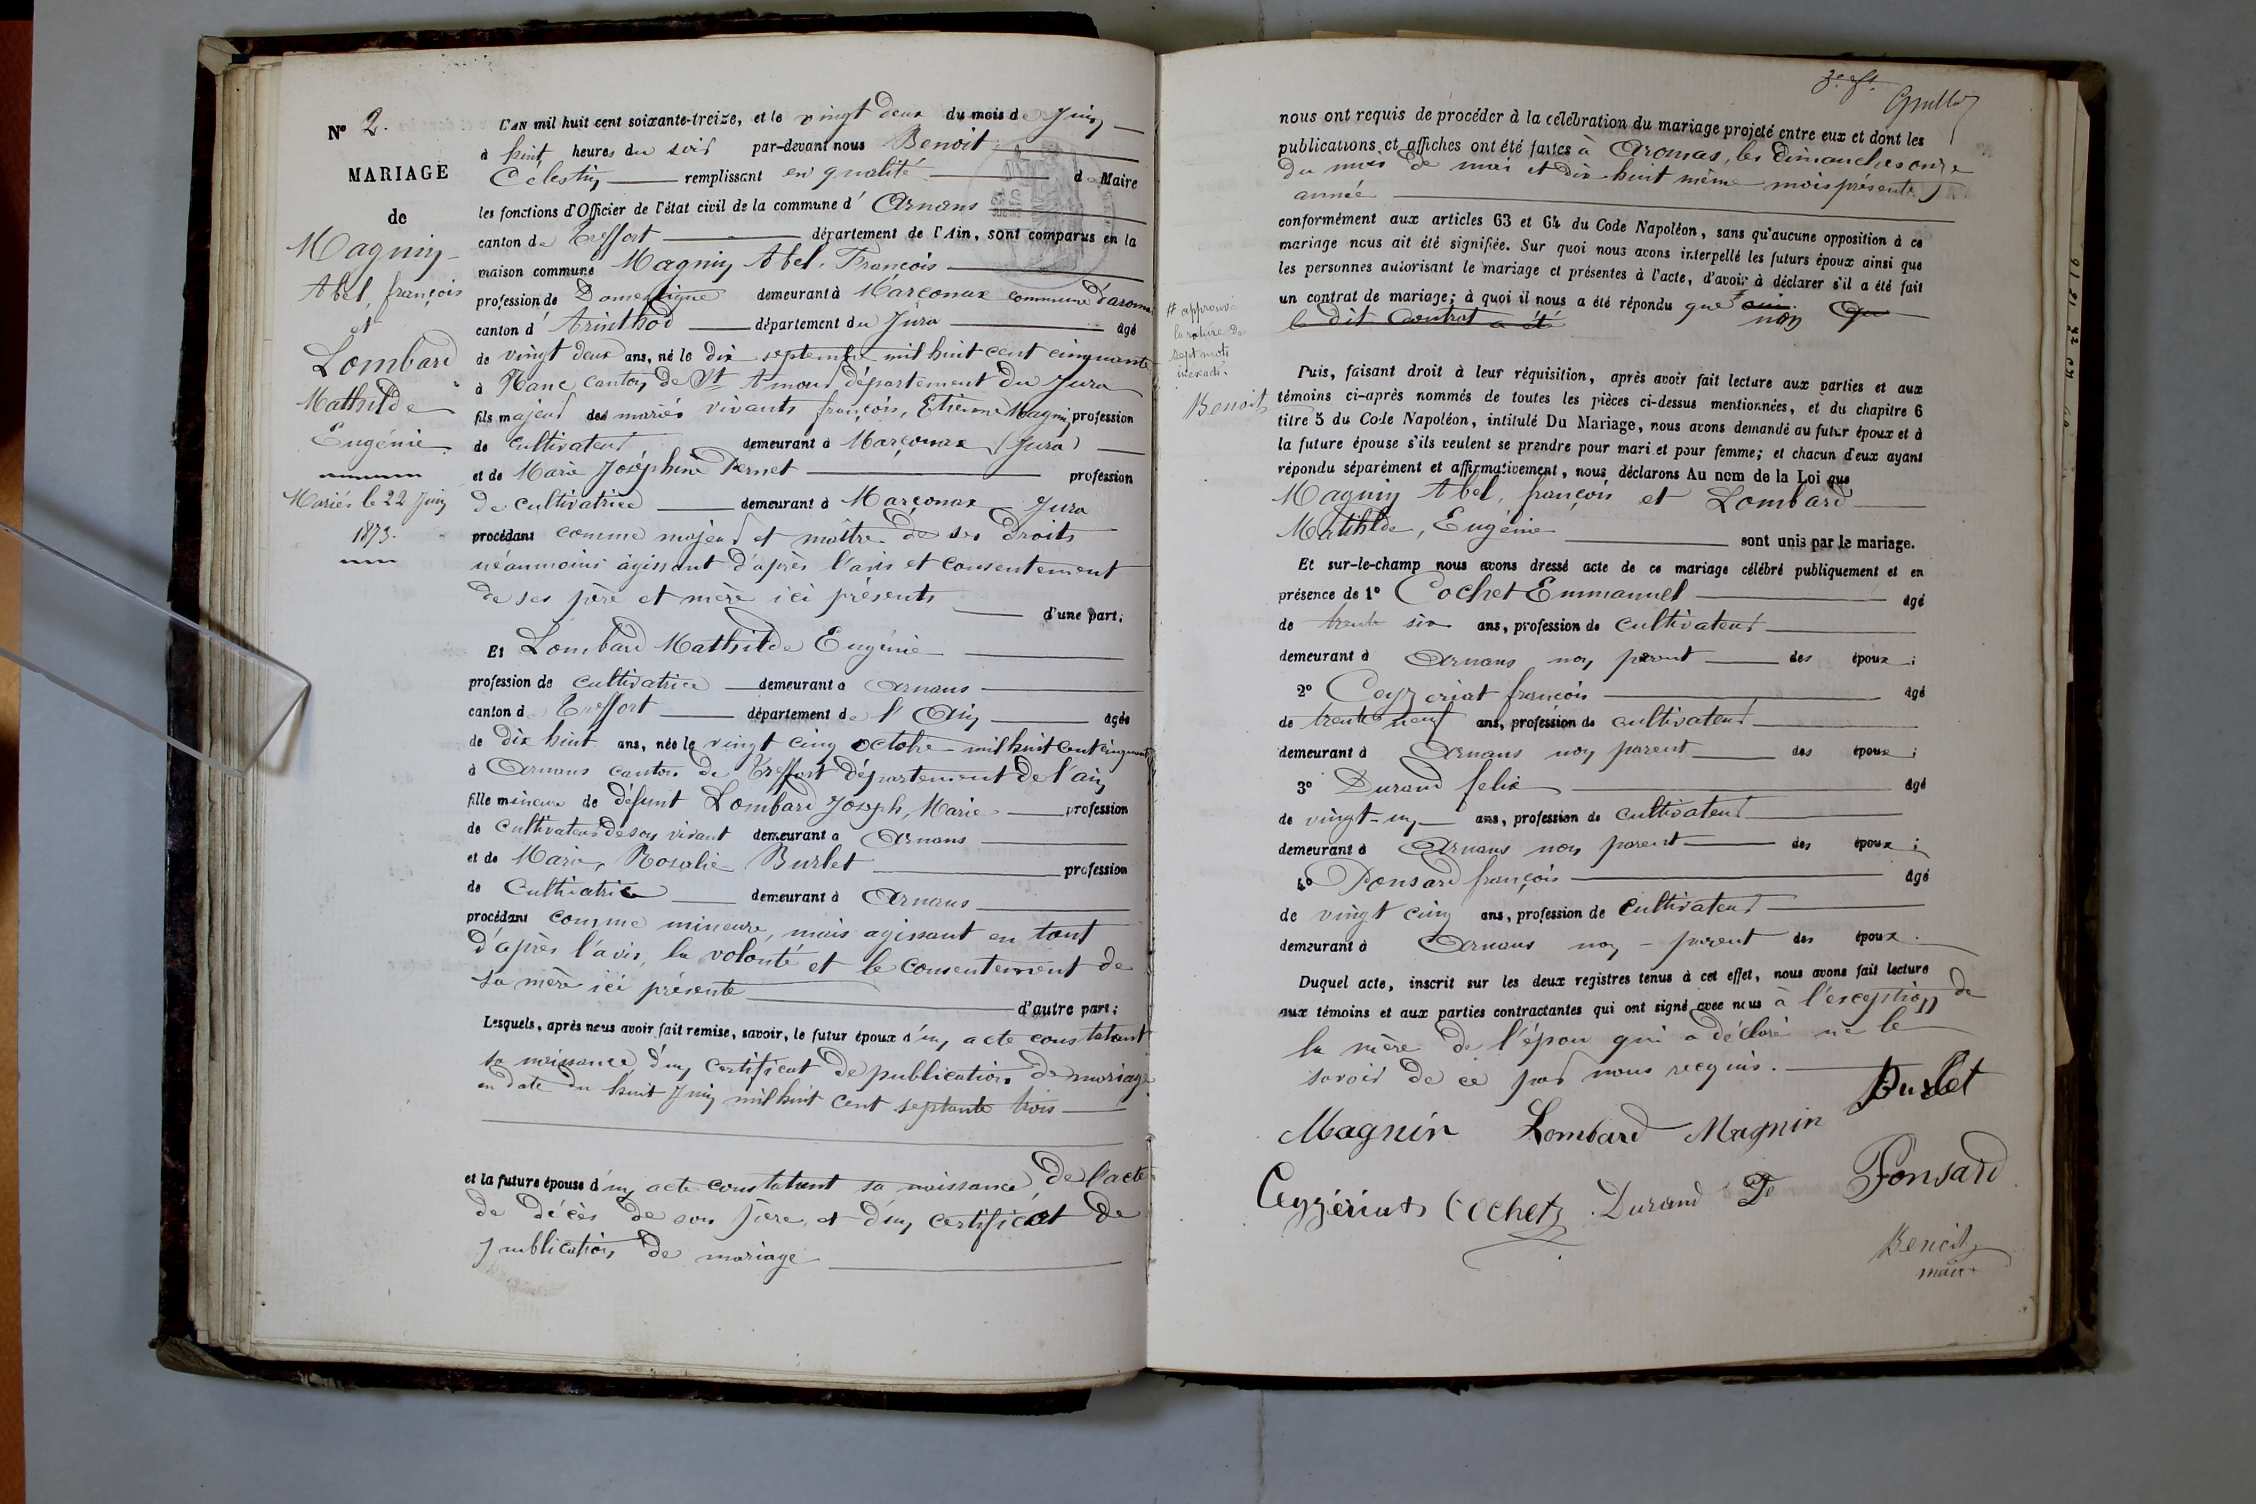 N° 2.
MARIAGE
de
Magnin
Abel, françois
et
Lombard
Mathilde
Eugénie
Mariés le 22 Juin
1873.
L'AN mil huit cent soixante-treize, et le vingt deux du mois de Juin
à huit heures du soir par-devant nous Benoit
Célestin remplissant en qualité de Maire
les fonctions d'Officier de l'état civil de la commune d' Arnans
canton de Treffort département de l'Ain, sont comparus en la
maison commune Magnin Abel, François
profession de Domestique demeurant à Marçonax commune d'aromas
canton d' Arinthod département du Jura âgé
de vingt deux ans, né le dix septembre mil huit cent cinquante
à canton de St Amour département du Jura
fils majeur des mariés vivants françois, Etienne Magnin profession
de cultivateur demeurant à Marçonax (Jura)
et de Marie Joséphine Pernet profession
de cultivatrice demeurant à Marçonax Jura
procédant comme majeur et maître de ses droits
néanmoins agissant d'après l'avis et consentement
de ses père et mère ici présents d'une part;
Et Lombard Mathilde Eugénie
profession de cultivatrice demeurant à Arnans
canton de Treffort département de l'Ain âgée
de dix huit ans, née le vingt cinq octobre mil huit cent cinquante
à Arnans canton de Treffort département de l'ain
fille mineure de défunt Lombard Joseph, Marie profession
de cultivateur de son vivant demeurant à Arnans
et de Marie, Rosalie Burlet profession
de Cultivatrice demeurant à Arnans
procédant comme mineure, mais agissant en tout
d'après l'avis, la volonté et le consentement de
sa mère ici présente d'autre part;
Lesquels, après nous avoir fait remise, savoir, le futur époux d'un acte constatant
sa naissance d'un certificat de publication de mariage
en date du huit Juin mil huit cent septante trois
et la future épouse d'un acte constatant sa naissance, de l'acte
de décès de son père, et d'un certificat de
publication de mariage
3e ft.
nous ont requis de procéder à la célébration du mariage projeté entre eux et dont les
publications et affiches ont été faites à Aromas, les dimanches onze
du mois de mai et dix huit même mois présente
année
conformément aux articles 63 et 64 du Code Napoléon, sans qu'aucune opposition à ce
mariage nous ait été signifiée. Sur quoi nous avons interpellé les futurs époux ainsi que
les personnes autorisant le mariage et présentes à l'acte, d'avoir à déclarer s'il a été fait
un contrat de mariage; à quoi il nous a été répondu que oui. Que
non
le dit Contrat a été
# approuvé
la rature de
sept mots
inexacts.
Benoit
Puis, faisant droit à leur réquisition, après avoir fait lecture aux parties et aux
témoins ci-après nommés de toutes les pièces ci-dessus mentionnées, et du chapitre 6
titre 5 du Code Napoléon, intitulé Du Mariage, nous avons demandé au futur époux et à
la future épouse s'ils veulent se prendre pour mari et pour femme; et chacun d'eux ayant
répondu séparément et affirmativement, nous déclarons Au nom de la Loi que
Magnin Abel, françois et Lombard
Mathilde, Eugénie sont unis par le mariage.
Et sur-le-champ nous avons dressé acte de ce mariage célébré publiquement et en
présence de 1° Cochet Emmanuel âgé
de trente six ans, profession de cultivateur
demeurant à Arnans non parent des époux;
2° Ceyzeriat françois âgé
de trente neuf ans, profession de cultivateur
demeurant à Arnans non parent des époux;
3° Durand felix âgé
de vingt-un ans, profession de cultivateur
demeurant à Arnans non parent des époux;
4° Ponsard françois âgé
de vingt cinq ans, profession de Cultivateur
demeurant à Arnans non - parent des époux.
Duquel acte, inscrit sur les deux registres tenus à cet effet, nous avons fait lecture
aux témoins et aux parties contractantes qui ont signé avec nous à l'exception de
la mère de l'époux qui a déclaré ne le
savoir de ce par nous requis.
Burlet
Magnin Lombard Magnin
Ceyzériat Cochet Durand Ponsard
Benoit
maire